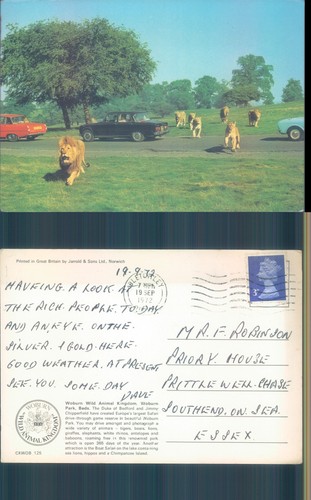 Printed in Great Britain by Jarrold & Sons Ltd., Norwich
19.9.72
HAVEING A LOOK AT
THE RICH. PEOPLE, TO DAY
AND AN EYE. ON THE.
SILVER. & GOLD. HERE.
GOOD WEATHER. AT PRESENT
SEE. YOU. SOME. DAY
DAVE
7 PM
19 SEP
1972
3P
MR. F. ROBINSON
PRIORY. HOUSE
PRITTLEWELL. CHASE
SOUTHEND. ON. SEA.
ESSEX
WILD ANIMAL KINGDOM
Woburn Wild Animal Kingdom, Woburn
Park, Beds. The Duke of Bedford and Jimmy
Chipperfield have created Europe's largest Safari
drive-through game reserve in beautiful Woburn
Park. You may drive amongst and photograph a
wide variety of animals: tigers, lions,
giraffes, elephants, white rhinos, antelopes and
baboons, roaming free in this renowned park
which is open 365 days of the year. Another
attraction is the Boat Safari on the lake
sea lions, hippos and a Chimpanzee Island.
CKWOB 125